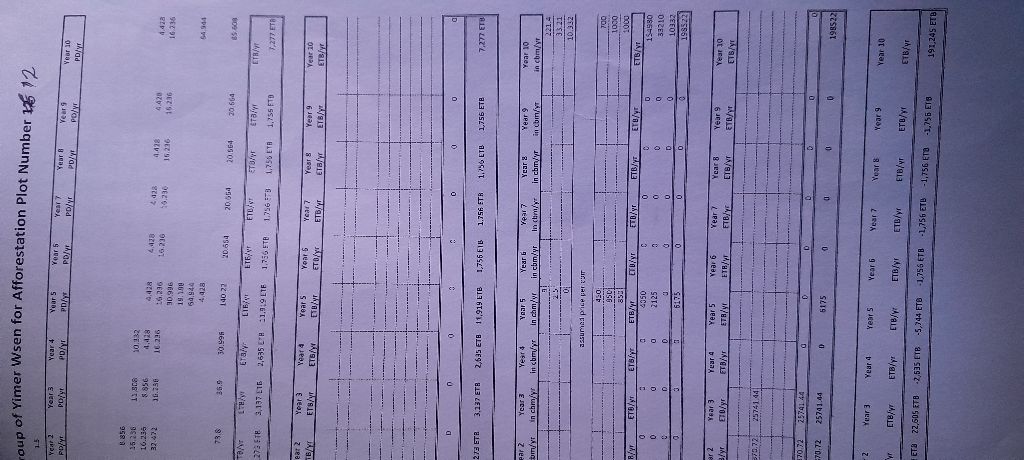 roup of Yimer Wsen for Afforestation Plot Number 12
1.5
Year 2 Year 3 Year 4 Year 5 Year 6 Year 7 Year 8 Year 9 Year 10
PD/yr PD/yr PD/yr PD/yr PD/yr PD/yr PD/yr PD/yr PD/yr
8.856 11.808 10.332 4.428 4.428 4.428 4.428 4.428 4.428
16.236 8.856 4.428 16.236 16.236 16.236 16.236 16.236 16.236
16.236 16.236 16.236 30.996
32.472 19.188
64.944 64.944
4.428
73.8 36.9 30.996 140.22 20.664 20.664 20.664 20.664 85.608
ETB/yr ETB/yr ETB/yr ETB/yr ETB/yr ETB/yr ETB/yr ETB/yr
273 ETB 3,137 ETB 2,635 ETB 11,919 ETB 1,756 ETB 1,756 ETB 1,756 ETB 1,756 ETB 7,277 ETB
ear 2 Year 3 Year 4 Year 5 Year 6 Year 7 Year 8 Year 9 Year 10
TB/yr ETB/yr ETB/yr ETB/yr ETB/yr ETB/yr ETB/yr ETB/yr ETB/yr
0 0 0 0 0 0 0 0 0
273 ETB 3,137 ETB 2,635 ETB 11,919 ETB 1,756 ETB 1,756 ETB 1,756 ETB 1,756 ETB 7,277 ETB
ear 2 Year 3 Year 4 Year 5 Year 6 Year 7 Year 8 Year 9 Year 10
bm/yr in cbm/yr in cbm/yr in cbm/yr in cbm/yr in cbm/yr in cbm/yr in cbm/yr in cbm/yr
221.4
2.5 33.21
0 10.332
assumed price per cbm
450 700
850 1000
850 1000
B/yr ETB/yr ETB/yr ETB/yr ETB/yr ETB/yr ETB/yr ETB/yr ETB/yr
0 0 0 4050 0 0 0 0 154980
0 0 0 2125 0 0 0 0 33210
0 0 0 0 0 0 0 10332
0 0 0 6175 0 0 0 0 198522
ear 2 Year 3 Year 4 Year 5 Year 6 Year 7 Year 8 Year 9 Year 10
B/yr ETB/yr ETB/yr ETB/yr ETB/yr ETB/yr ETB/yr ETB/yr ETB/yr
70.72 25741.44
70.72 25741.44 0 0 0 0 0 0 0
70.72 25741.44 0 6175 0 0 0 0 198522
2 Year 3 Year 4 Year 5 Year 6 Year 7 Year 8 Year 9 Year 10
yr ETB/yr ETB/yr ETB/yr ETB/yr ETB/yr ETB/yr ETB/yr ETB/yr
ETB 22,605 ETB -2,635 ETB -5,744 ETB -1,756 ETB -1,756 ETB -1,756 ETB -1,756 ETB 191,245 ETB